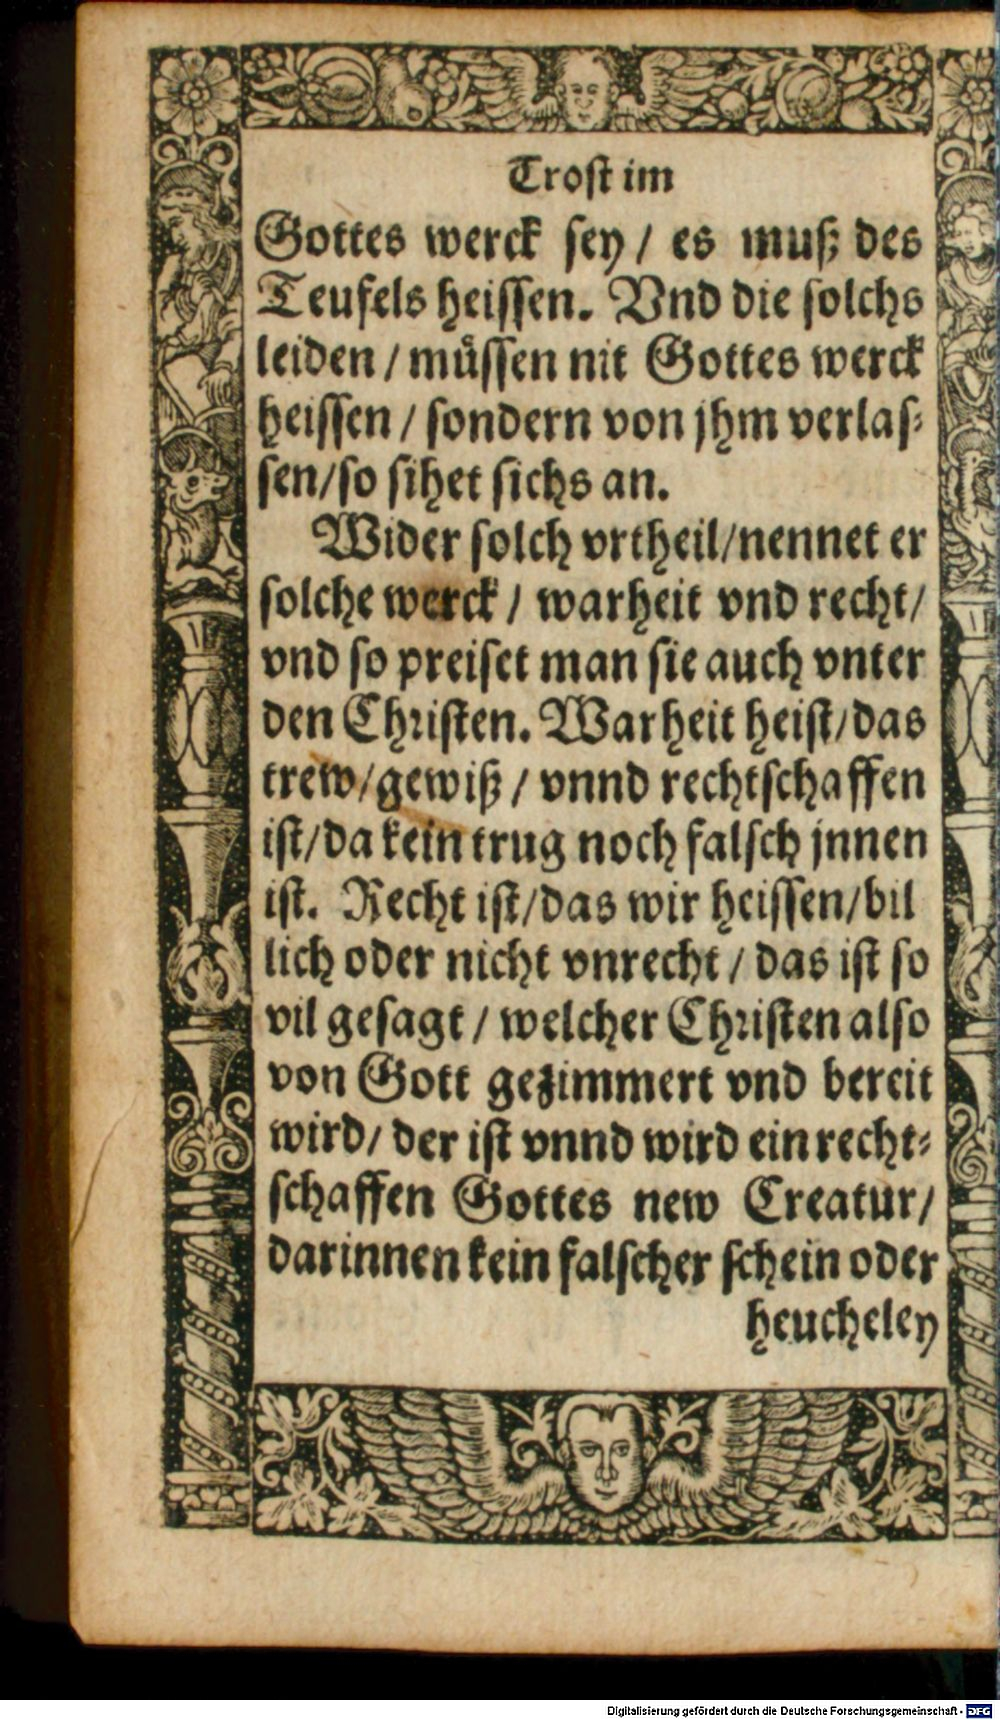 Trost im
Gottes werck sey / es muß des
Teufels heissen. Vnd die solchs
leiden / müssen nit Gottes werck
heissen / sondern von jhm verlas⸗
sen/so sihet sichs an.
Wider solch vrtheil/nennet er
solche werck / warheit vnd recht/
vnd so preiset man sie auch vnter
den Christen. Warheit heist/das
trew/gewiß / vnnd rechtschaffen
ist/da kein trug noch falsch jnnen
ist. Recht ist/das wir heissen/bil
lich oder nicht vnrecht / das ist so
vil gesagt / welcher Christen also
von Gott gezimmert vnd bereit
wird/ der ist vnnd wird ein recht⸗
schaffen Gottes new Creatur/
darinnen kein falscher schein oder
heucheley
Digitalisierung gefördert durch die Deutsche Forschungsgemeinschaft - DFG